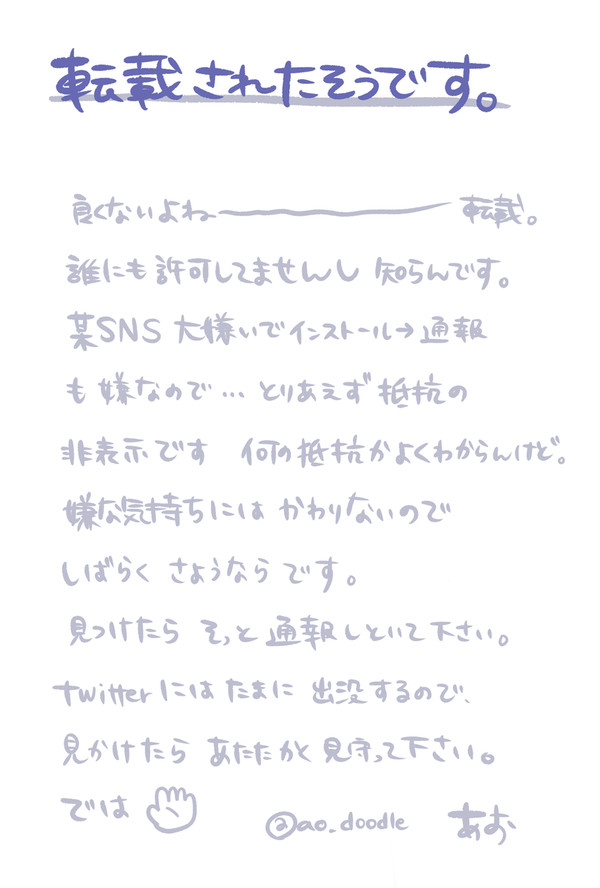 転載されたそうです。
良くないよねー 転載。
誰にも許可してませんし 知らんです。
某SNS 大嫌いでインストール→通報
も嫌なので… とりあえず抵抗の
非表示です 何の抵抗かよくわからんけど。
嫌な気持ちには かわりないので
しばらく さようならです。
見つけたら そっと通報しといて下さい。
twitterにはたまに 出没するので、
見かけたら あたたかく見守って下さい。
では
@ao_doodle あお